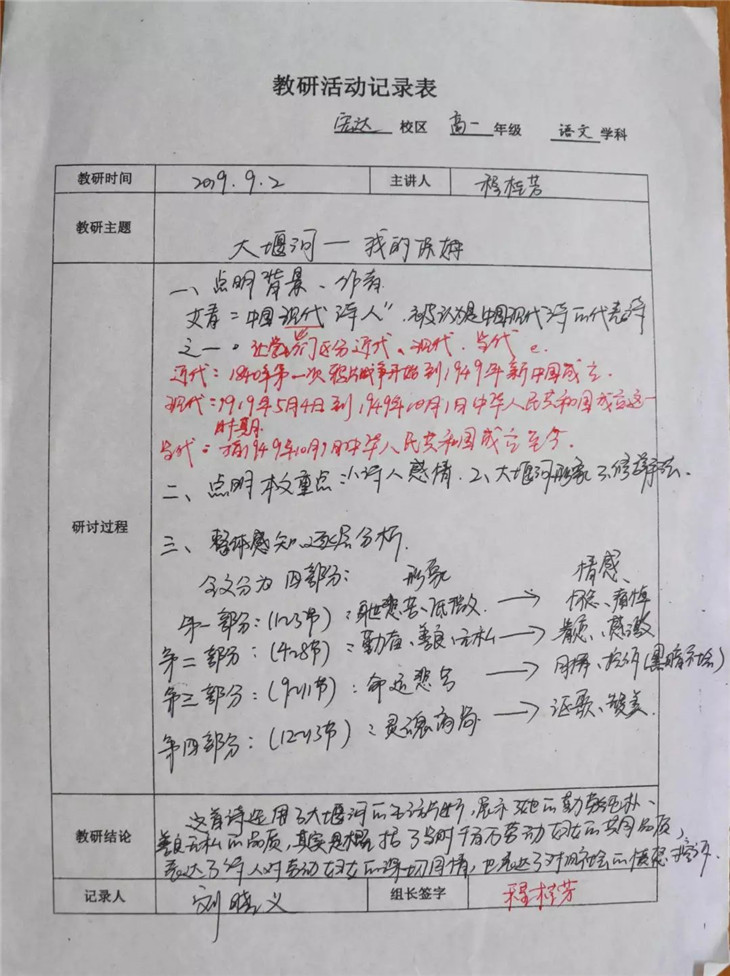 教研活动记录表
宏达 校区 高一 年级 语文 学科
教研时间 2019.9.2 主讲人 程桂芳
教研主题 大堰河——我的保姆
研讨过程
一、点明背景、作者
艾青：中国现代“诗人”.被认为是中国现代诗的代表诗
之一。让学生们区分近代、现代、当代。
近代：1840年第一次鸦片战争开始到1949年新中国成立.
现代：1919年5月4日到1949年10月1日中华人民共和国成立这一
时期
当代：指1949年10月1日中华人民共和国成立至今.
二、点明本文重点：1、诗人感情.2、大堰河形象 3、修辞手法.
三、整体感知、逐层分析.
全文分为四部分： 形象 情感、
第一部分：(1~3节)：身世悲苦、低微. → 怀念、痛悼
第二部分：(4~8节)：勤苦、善良、无私 → 眷念、感激
第三部分：(9~11节)：命运悲苦 → 同情、控诉(黑暗社会)
第四部分：(12~13节)：灵魂高尚 → 讴歌、赞美.
教研结论
这首诗运用了大堰河的生活片断,展示了她的勤劳纯朴、
善良无私的品质,其实是概括了当时千万劳动妇女的共同品质,
表达了诗人对劳动妇女的深切同情,也表达了对旧社会的愤怒控诉.
记录人 刘晓义 组长签字 程桂芳